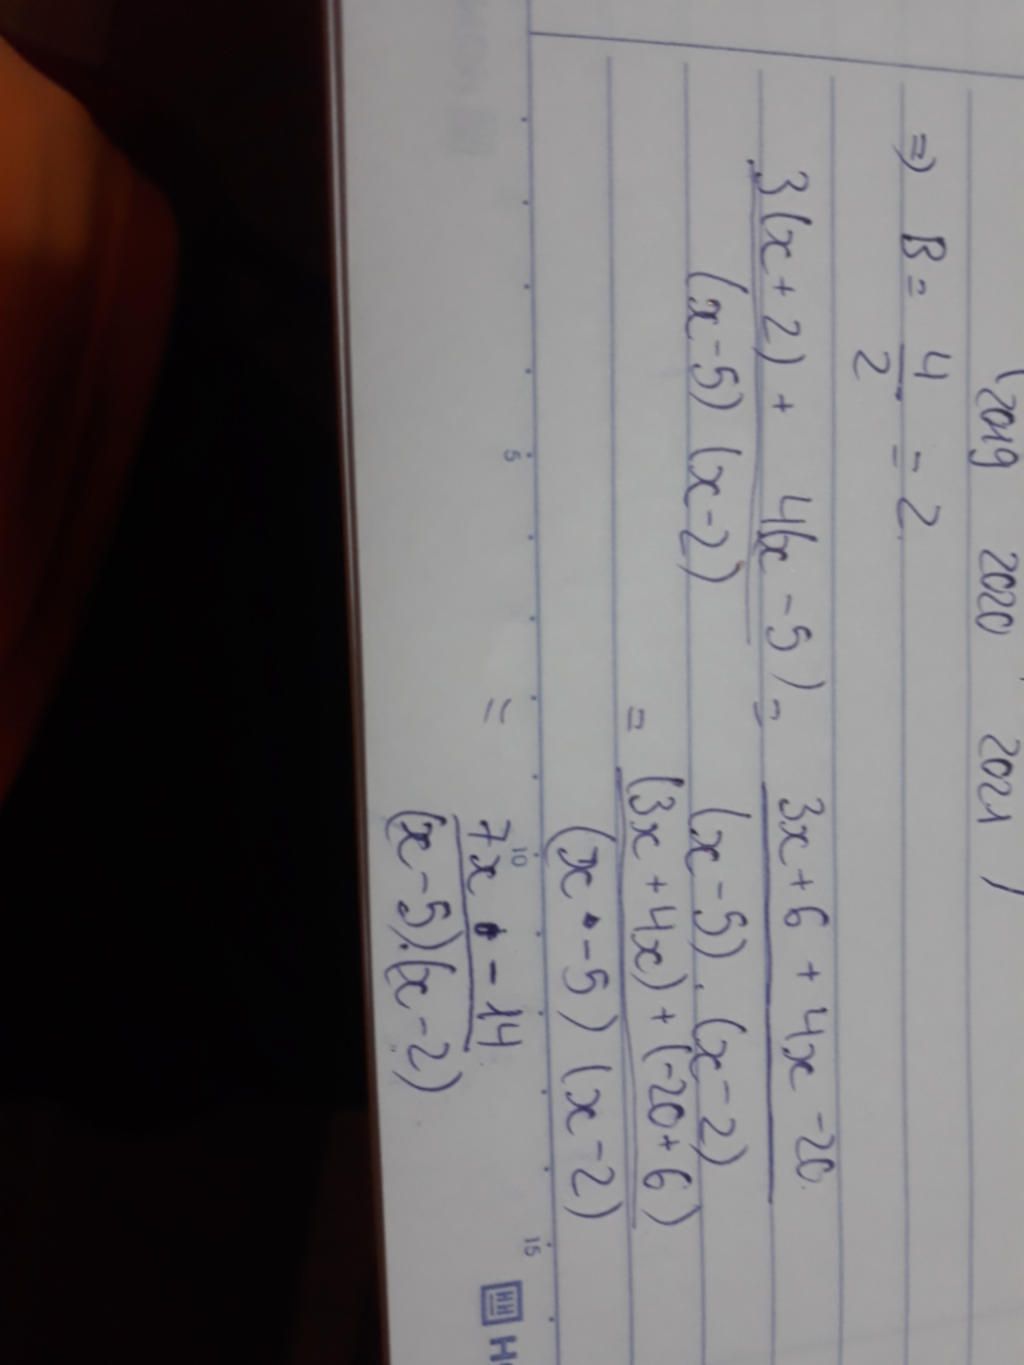 (2019 2020 2021 )
=> B = 4/2 = 2
3(x+2) + 4(x-5) = 3x+6 + 4x -20
(x-5) (x-2) (x-5) . (x-2)
= (3x+4x) + (-20+6)
(x-5) (x-2)
= 7x - 14
(x-5).(x-2)
5 10 15